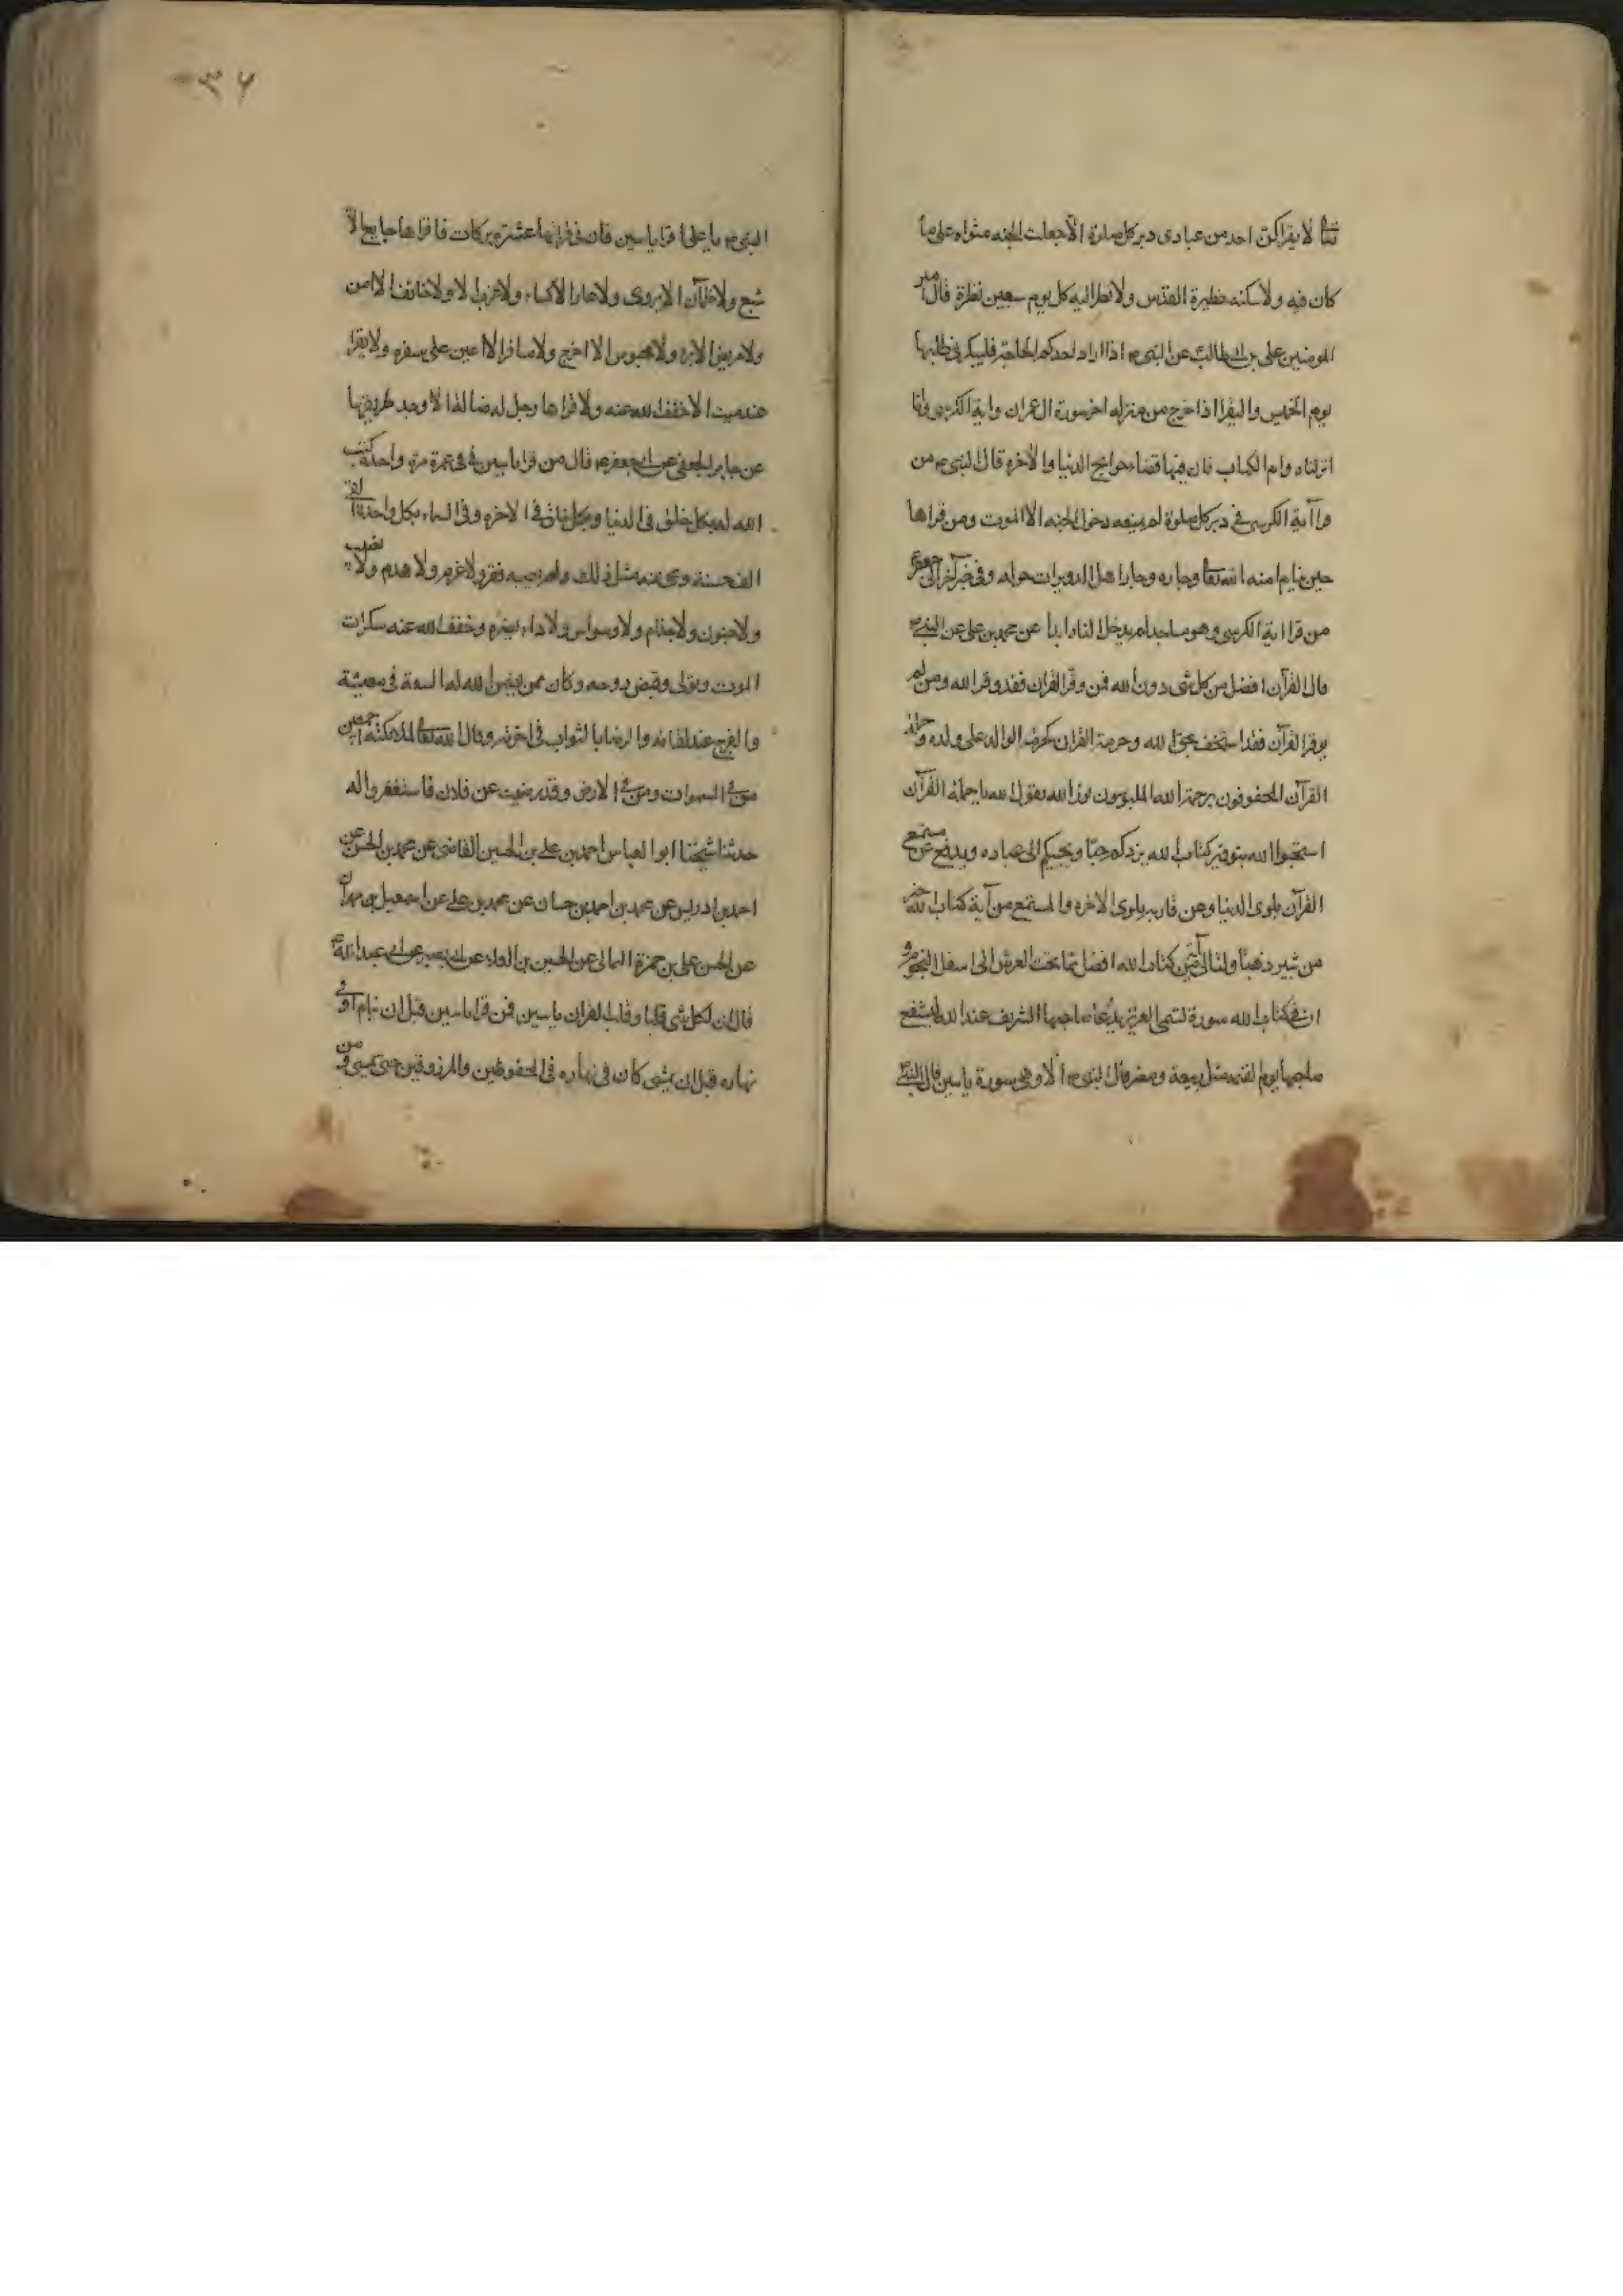 تعا لا يقراكن احد من عبادى دبر كل صلوة الا جعلت الجنه مثواه على ما
كان فيه ولاسكنته حظيرة القدس ولانظر اليه كل يوم سبعين نظرة قال امير
المومنين على بن ابى طالب عن النبى ص اذا اراد احدكم الحاجة فليبكر فى طلبها
يوم الخميس واليقرا اذا خرج من منزله اخر سورة ال عمران واية الكرسى وانا
انزلناه وام الكتاب فان فيها قضاء حوايج الدنيا والآخره قال النبى ص من
قرا آية الكرسى فى دبر كل صلوة لم يمنعه دخول الجنه الا الموت ومن قراها
حين ينام امنه الله تعا وجاره وجار اهل الدويرات حوله وفى خبر آخر الى جعفر
من قرا اية الكرسى وهو ساجد لم يدخل النار ابدا عن محمد بن على عن النبى ص
قال القرآن افضل من كل شى دون الله فمن وقر القران فقد وقر الله ومن لم
يوقر القرآن فقد استخف بحق الله وحرمة القران كحرمة الوالد على ولده وحملة
القرآن المحفوفون برحمة الله الملبوسون نور الله يقول الله يا حملة القرآن
استحبوا الله بتوقير كتاب الله يزدكم حبا ويحببكم الى عباده ويدفع عن مستمع
القرآن بلوى الدنيا وعن قاريه بلوى الاخره والمستمع من آية كتاب الله خير
من ثبير ذهبا ولتالى آية من كتاب الله افضل مما تحت العرش الى اسفل التخوم و
ان فى كتاب الله سورة تسمى العزيز يدعا صاحبها الشريف عند الله يشفع
صاحبها يوم القيمه مثل ربيعة ومضر قال النبى ص الا وهى سورة ياسين قال النبى
٣٦
النبى ص يا على اقرا ياسين فان فى قرائتها عشرة بركات فا قراها جايع الا
شبع ولا ظمآن الا روى ولا عار الا كساء ولا عزب الا ولا خائف الا امن
ولا مريض الا برء ولا محبوس الا اخرج ولا مسافر الا اعين على سفره ولا يقرا
عند ميت الا خفف الله عنه ولا قراها رجل له ضالة الا وجد طريقها
عن جابر الجعفى عن ابى جعفر ع قال من قرا ياسين فى عمره مرة واحدة كتب
الله له بكل خلق فى الدنيا وبكل خلق فى الاخره وفى السماء بكل واحد الفى
الف حسنة ومحى عنه مثل ذلك ولم يصبه فقر ولا غرم ولا هدم ولا نصب
ولا جنون ولا جذام ولا وسواس ولا داء يضره وخفف الله عنه سكرات
الموت وتولى وقبض روحه وكان ممن يضمن الله له السعة فى معيشة
والفرح عند لقائه والرضا بالثواب فى اخرته وقال الله تعا لملائكته اجمعين
من فى السموات ومن فى الارض وقد رضيت عن فلان فاستغفروا له
حدثنا شيخنا ابو العباس احمد بن على بن الحسين القاضى عن محمد بن الحسن عن
احمد بن ادريس عن محمد بن احمد بن حسان عن محمد بن على عن اسمعيل بن مهران
عن الحسن على بن حمزة الثمالى عن الحسين بن العلاء عن ابى بصير عن ابى عبد الله ع
قال ان لكل شى قلبا وقلب القران ياسين فمن قرا ياسين قبل ان ينام او فى
نهاره قبل ان يمشى كان فى نهاره فى المحفوظين والمرزوقين حتى يمسى ومن